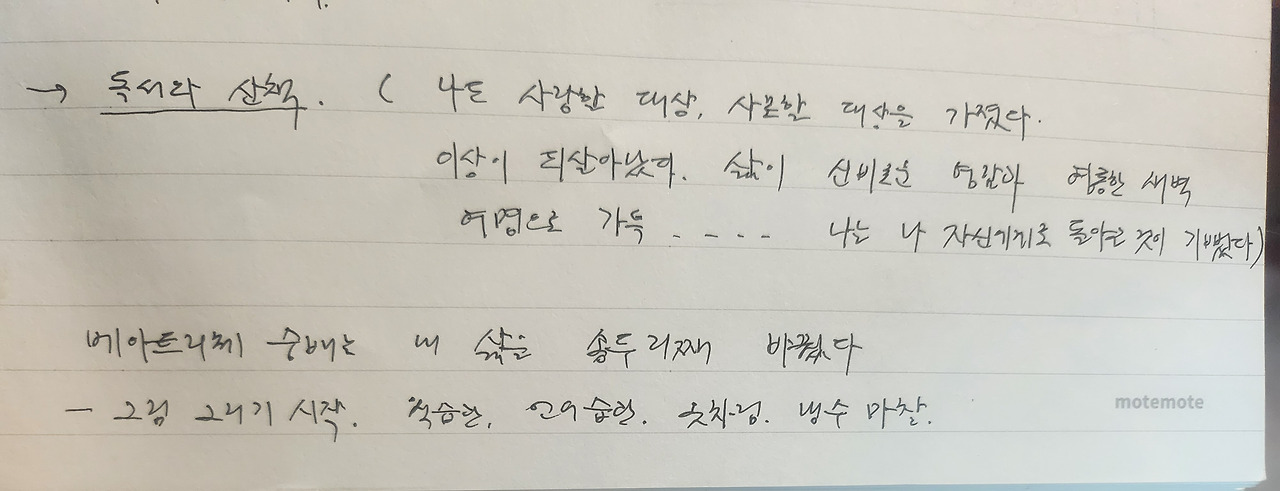 → 독서와 산책. ( 나도 사랑할 대상, 사모할 대상을 가졌다.
이상이 되살아났다. 삶이 신비로운 영감과 영롱한 새벽
여명으로 가득 - - - - 나는 나 자신에게로 돌아온 것이 기뻤다)
베아트리체 숭배는 내 삶을 송두리째 바꿨다
- 그림 그리기 시작. 식습관, 언어습관. 옷차림. 냉수 마찰.
motemote